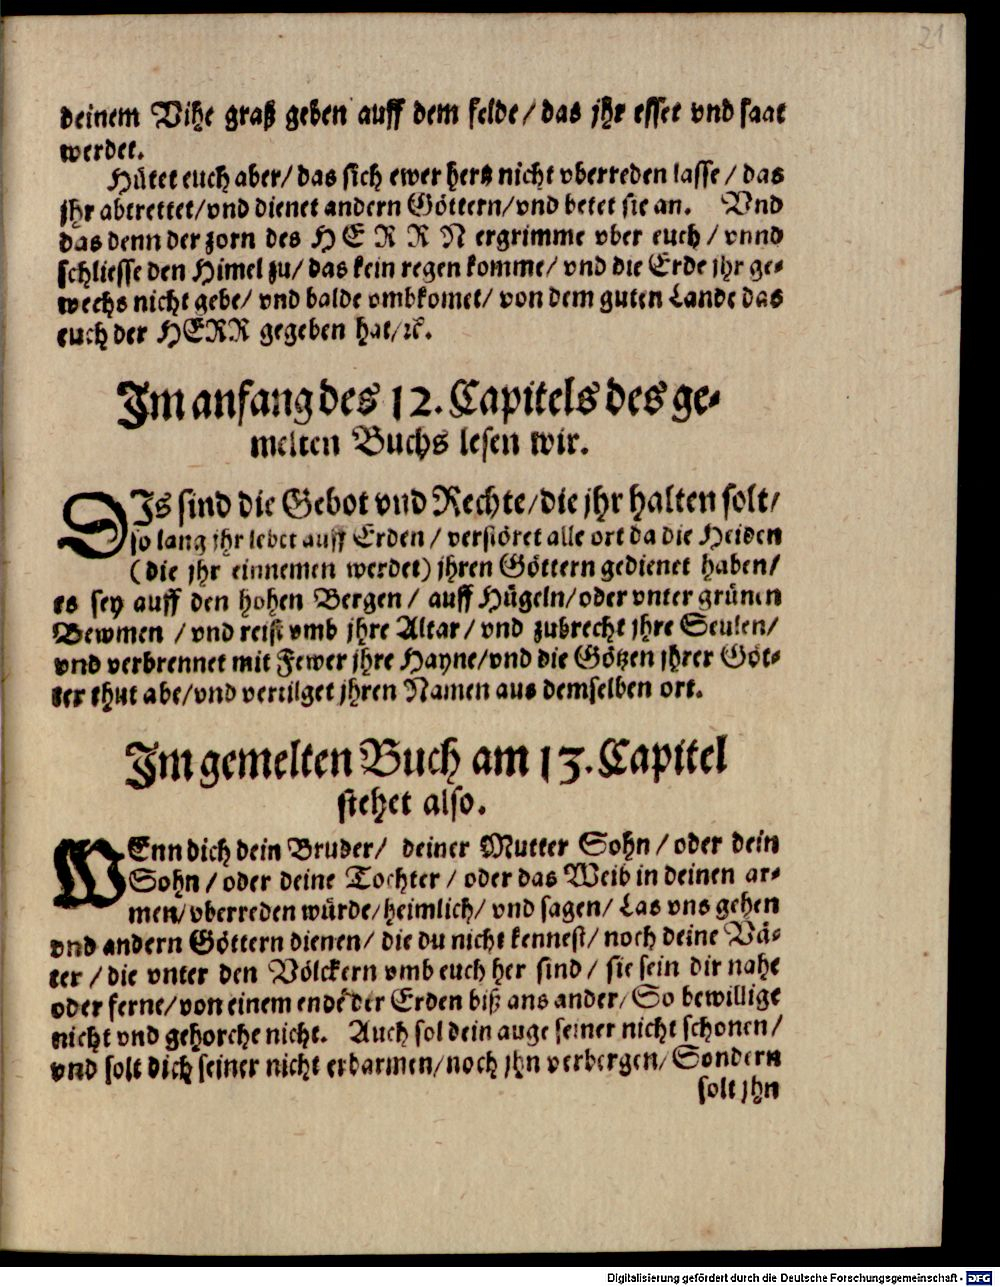 21
deinem Vihe graß geben auff dem felde / das jhr esset vnd saat
werdet.
Hütet euch aber / das sich ewer hertz nicht vberreden lasse / das
jhr abtrettet / vnd dienet andern Göttern / vnd betet sie an. Vnd
das denn der zorn des HERRN ergrimme vber euch / vnnd
schliesse den Himel zu / das kein regen komme / vnd die Erde jhr ge-
wechs nicht gebe / vnd balde vmbkomet / von dem guten Lande das
euch der HERR gegeben hat / ꝛc.
Im anfang des 12. Capitels des ge-
melten Buchs lesen wir.
DIs sind die Gebot vnd Rechte / die jhr halten solt /
so lang jhr lebet auff Erden / verstöret alle ort da die Heiden
(die jhr einnemen werdet) jhren Göttern gedienet haben /
es sey auff den hohen Bergen / auff Hügeln / oder vnter grünen
Bewmen / vnd reist vmb jhre Altar / vnd zubrecht jhre Seulen /
vnd verbrennet mit Fewer jhre Hayne / vnd die Götzen jhrer Göt-
ter thut abe / vnd vertilget jhren Namen aus demselben ort.
Im gemelten Buch am 13. Capitel
stehet also.
WEnn dich dein Bruder / deiner Mutter Sohn / oder dein
Sohn / oder deine Tochter / oder das Weib in deinen ar-
men / vberreden würde / heimlich / vnd sagen / Las vns gehen
vnd andern Göttern dienen / die du nicht kennest / noch deine Vä-
ter / die vnter den Völckern vmb euch her sind / sie sein dir nahe
oder ferne / von einem ende der Erden biß ans ander / So bewillige
nicht vnd gehorche nicht. Auch sol dein auge seiner nicht schonen /
vnd solt dich seiner nicht erbarmen / noch jhn verbergen / Sondern
solt jhn
Digitalisierung gefördert durch die Deutsche Forschungsgemeinschaft - DFG